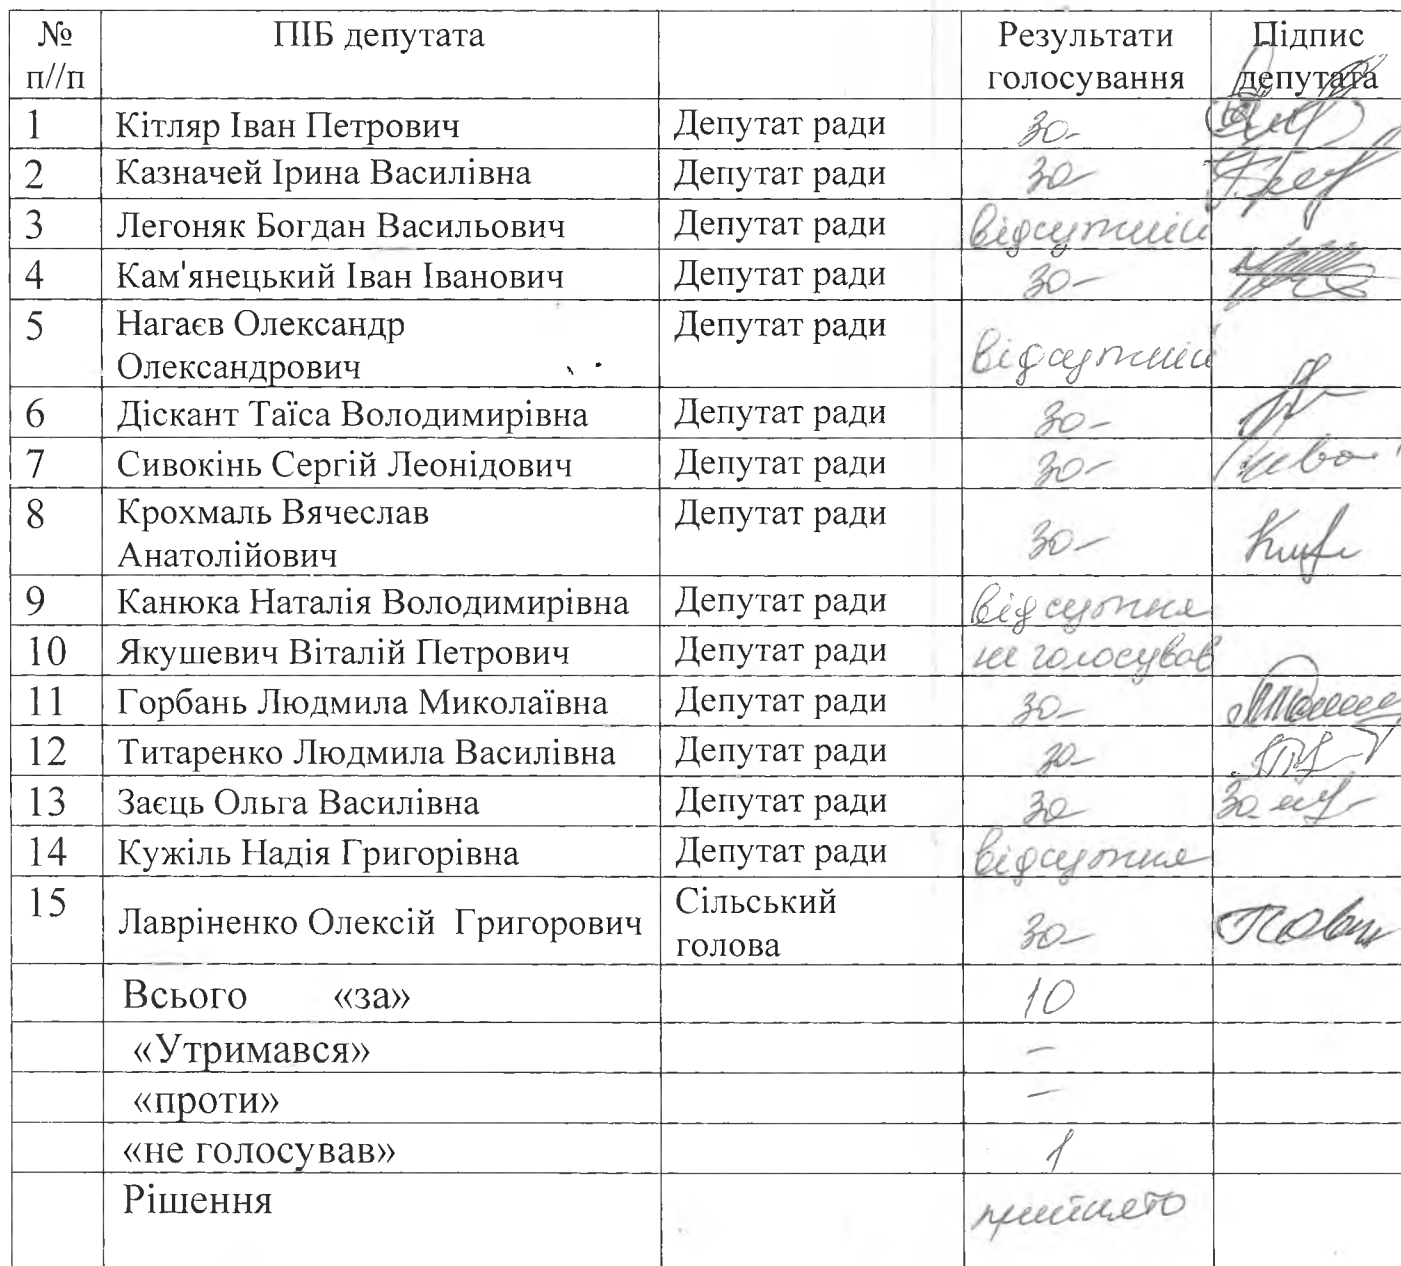 № ПІБ депутата Результати Підпис
п//п голосування депутата
1 Кітляр Іван Петрович Депутат ради за
2 Казначей Ірина Василівна Депутат ради за
3 Легоняк Богдан Васильович Депутат ради відсутній
4 Кам'янецький Іван Іванович Депутат ради за
5 Нагаєв Олександр Депутат ради
Олександрович відсутній
6 Діскант Таїса Володимирівна Депутат ради за
7 Сивокінь Сергій Леонідович Депутат ради за
8 Крохмаль Вячеслав Депутат ради
Анатолійович за
9 Канюка Наталія Володимирівна Депутат ради відсутня
10 Якушевич Віталій Петрович Депутат ради не голосував
11 Горбань Людмила Миколаївна Депутат ради за
12 Титаренко Людмила Василівна Депутат ради за
13 Заєць Ольга Василівна Депутат ради за
14 Кужіль Надія Григорівна Депутат ради відсутня
15 Лавріненко Олексій Григорович Сільський за
голова
Всього «за» 10
«Утримався» –
«проти» –
«не голосував» 1
Рішення прийнято